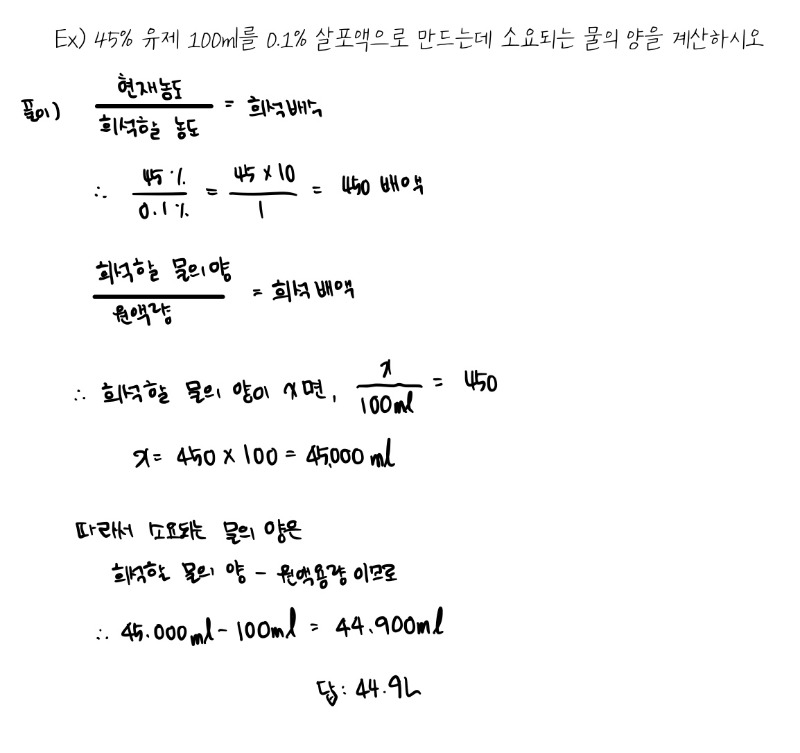 Ex) 45% 유제 100ml를 0.1% 살포액으로 만드는데 소요되는 물의 양을 계산하시오
풀이) 현재농도 / 희석할 농도 = 희석배수
∴ 45% / 0.1% = 45 × 10 / 1 = 450 배액
희석할 물의 양 / 원액량 = 희석 배액
∴ 희석할 물의 양이 x면, x / 100ml = 450
x = 450 × 100 = 45,000 ml
따라서 소요되는 물의 양은
희석할 물의 양 - 원액용량 이므로
∴ 45.000ml - 100ml = 44.900ml
답 : 44.9L